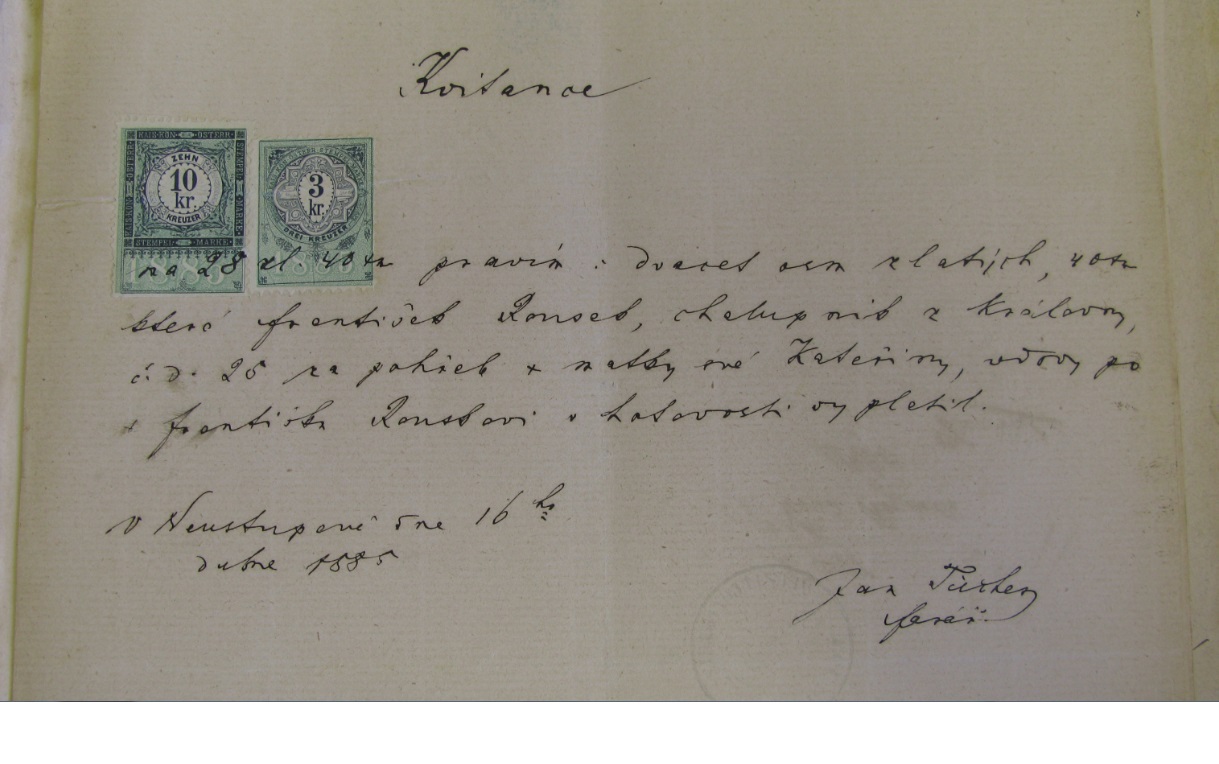 Kvitance
KAIS. KÖN. ÖSTERR.
ZEHN
10
kr.
KREUZER
STEMPEL MARKE
3
kr.
DREI KREUZER
na 28 zl 40 kr pravím: dvacet osm zlatých, 40 kr
které František Rousek, chalupník z Královny,
č. d. 25 za pohřeb + matky své Kateřiny, vdovy po
+ Františku Rouskovi v hotovosti vyplatil.
V Neustupově dne 16 ho
dubna 1885
Jan
farář.